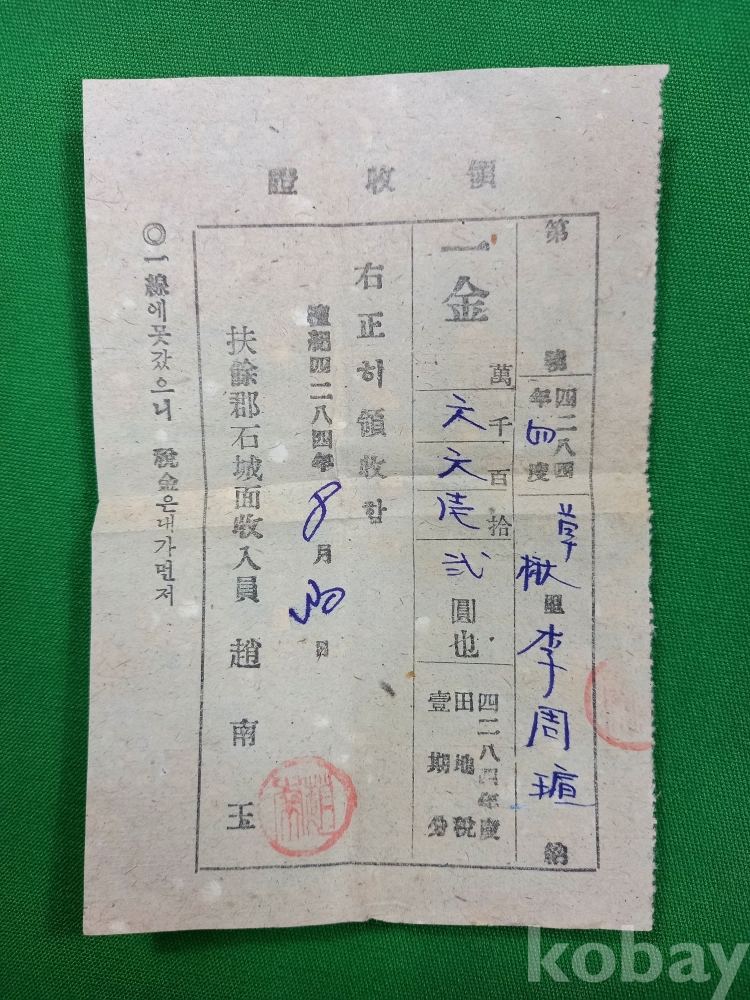 領收證
第 號
四二八四年度
草楸里 李周瑄 納
一金 萬 千 百 拾 弐 圓也
四二八四年度
田地稅
壹期分
右正히領收함
檀紀四二八四年 8月 日
扶餘郡石城面收入員 趙南玉
◎一線에못갔으니 稅金은내가먼저
kobay